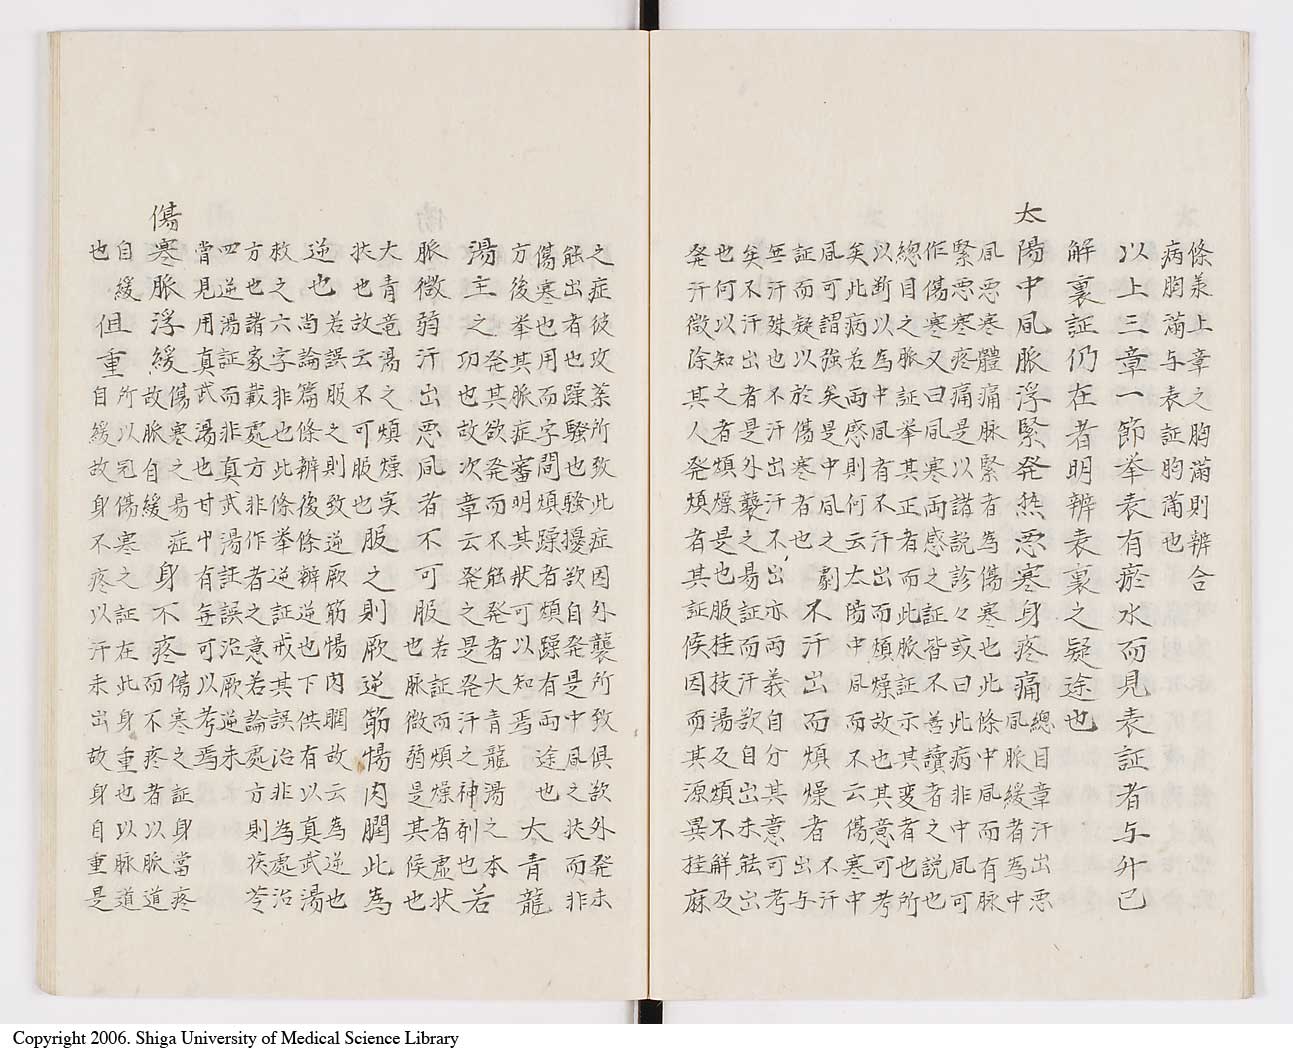 條羕上章之胸滿則辨合
病胸滿与表証胸滿也
以上三章一節挙表有瘀水而見表証者与廾已
解裏証仍在者明辨表裏之疑途也
太陽中風脉浮緊発热悪寒身疼痛總目章汗出悪
風脉緩者為中
風悪寒體痛脉緊者為傷寒也此條中風而有脉
緊悪寒疼痛是以諸説診々或曰此病非中風可
作傷寒又曰風寒両感之証皆不善讀者之説也
總目之脉証挙其正者而此脉証示其変者也所
以断以為中風有不汗出而煩燥故也其意可考
矣此病若両感則何云太陽中風而不云傷寒中
風可謂強矣是中風之劇
証而疑以於傷寒者也
不汗出而煩燥者不汗
出与
無汗殊也不汗出汗不出亦両義自分其意可考
矣不汗出者是外襲之易証而汗欲自出未能出
也何以知之者煩燥是也服桂枝湯及煩不解及
発汗微除其人発煩者其証候因而其源異桂麻
之症彼攻薬所致此症因外襲所致俱欲外発未
能出者也躁騒也騒擾欲自発是中風之状而非
傷寒也用而字間煩躁者煩躁有両途也
方後挙其脉症審明其状可以知焉
大青龍
湯主之発其欲発而不能発者大青龍湯之本
功也故次章云発之是発汗之神剤也
若
脉微弱汗出悪風者不可服也若証而煩燥者虚状
也脉微弱是其侯也
大青竜湯之煩燥実
扶也故云不可服也
服之則厥逆筋惕肉瞤此為
逆也若誤服之則致逆厥筋惕肉瞤故云為逆也
尚論篇條辨後條辨逆也下供有以真武湯
救之六字非也此條挙逆証戒其誤治非為處治
方也諸家載處方非作者之意若論處方則茯苓
四逆湯証而非真武湯証誤治厥逆未
嘗見用真武湯也甘中有毎可以考焉
傷寒脉浮緩傷寒之易症
故脉自緩
身不疼傷寒之証身當疼
而不疼者以脉道
自緩
也
但重所以冠傷寒之証在此身重也以脉道
自緩故身不疼以汗未出故身自重是
Copyright 2006. Shiga University of Medical Science Library